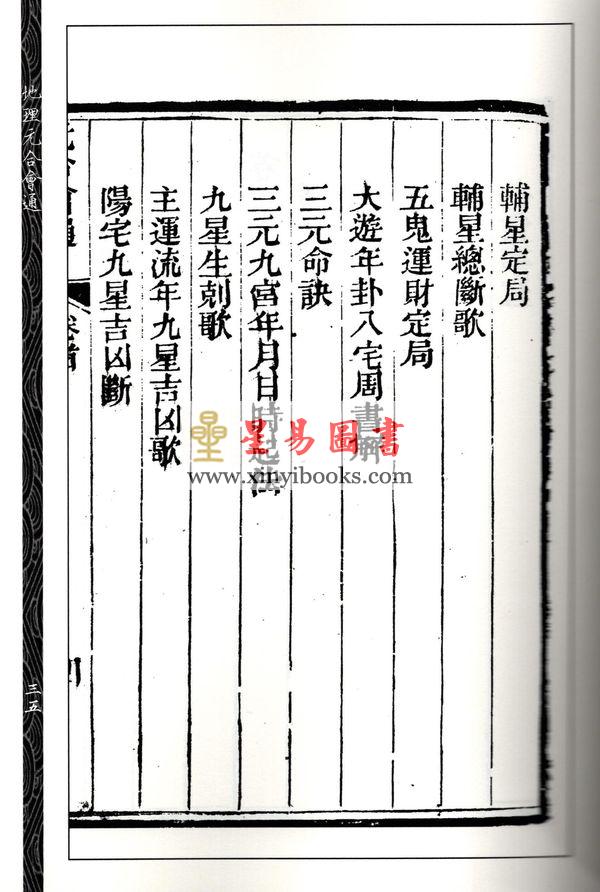 輔星定局
輔星總斷歌
五鬼運財定局
大遊年卦八宅周書解
三元命訣
三元九宮年月日時起法
九星生剋歌
主運流年九星吉凶歌
陽宅九星吉凶斷
元合會通
卷首
四
地理元合會通
三五
星易圖書
www.xinyibooks.com